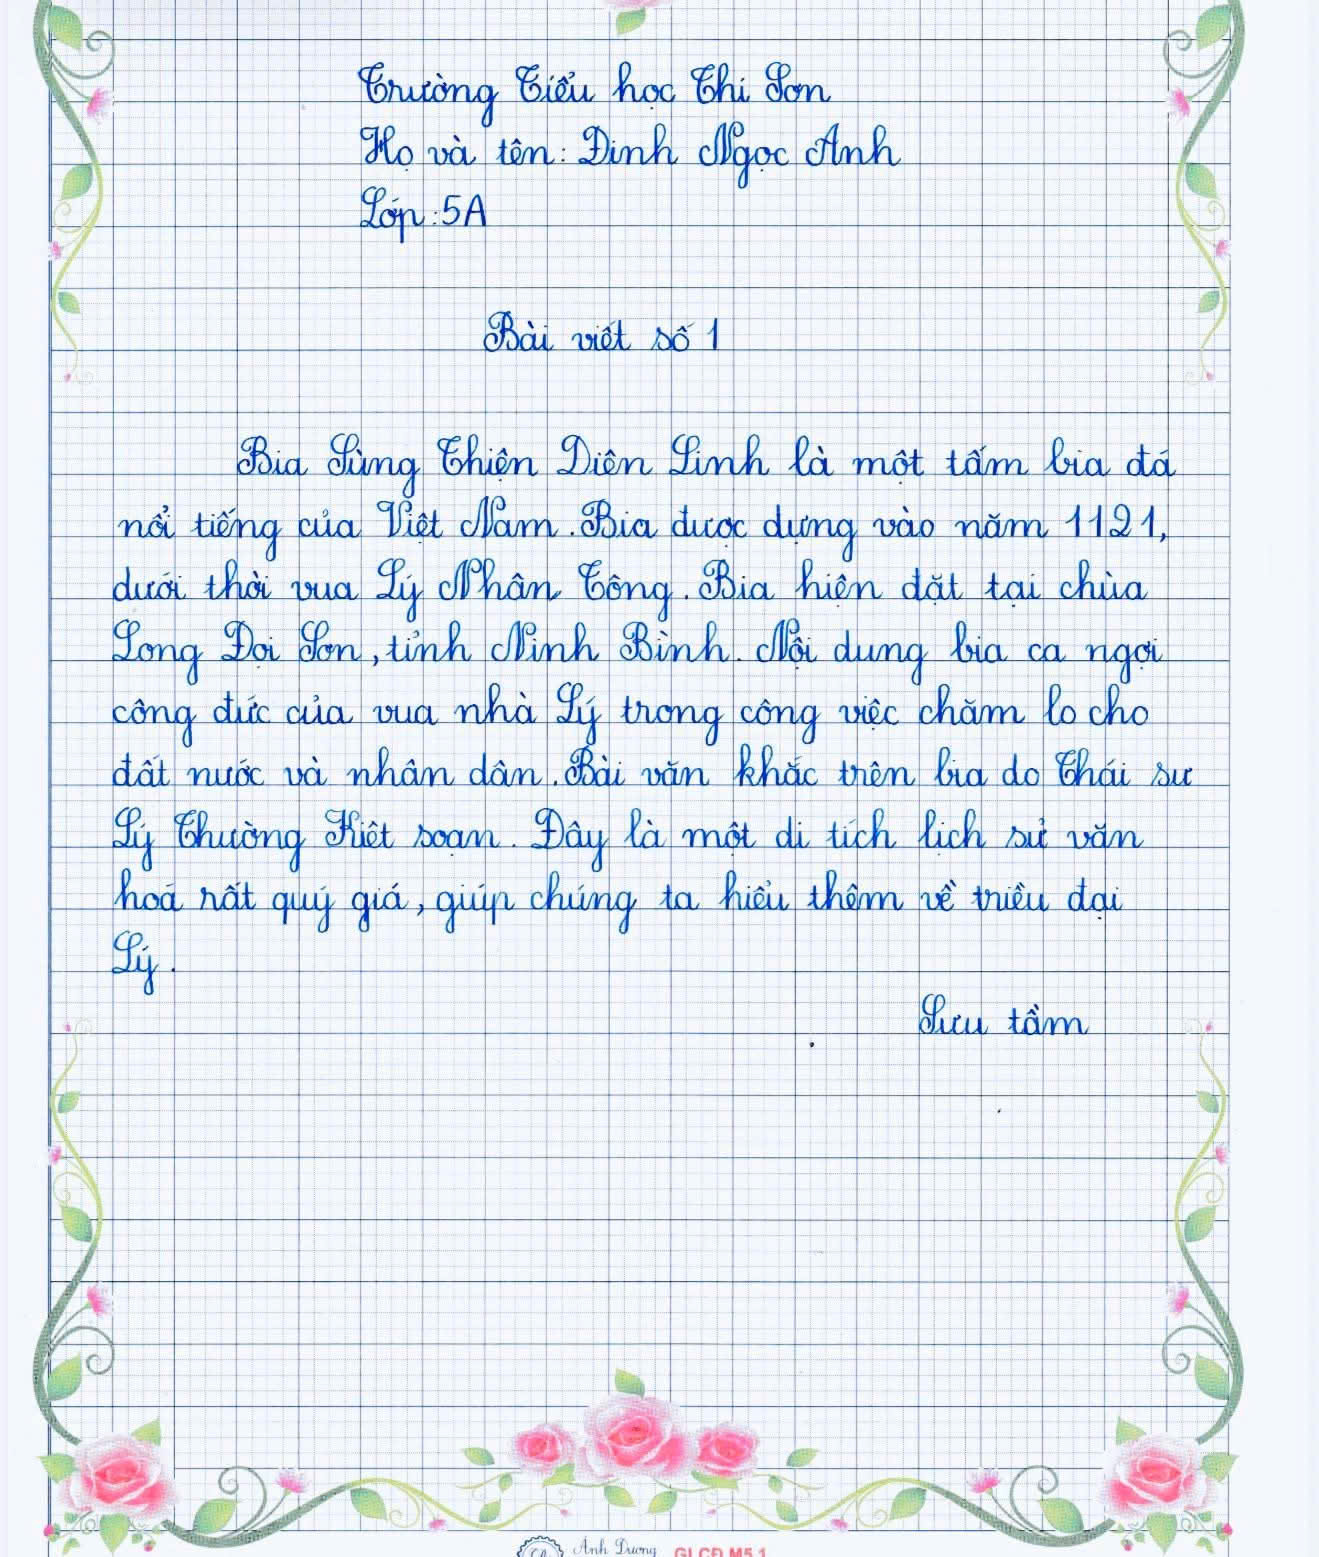 Trường Tiểu học Thi Sơn
Họ và tên: Đinh Ngọc Anh
Lớp: 5A
Bài viết số 1
Bia Sùng Thiện Diên Linh là một tấm bia đá
nổi tiếng của Việt Nam. Bia được dựng vào năm 1121,
dưới thời vua Lý Nhân Tông. Bia hiện đặt tại chùa
Long Đọi Sơn, tỉnh Ninh Bình. Nội dung bia ca ngợi
công đức của vua nhà Lý trong công việc chăm lo cho
đất nước và nhân dân. Bài văn khắc trên bia do Thái sư
Lý Thường Kiệt soạn. Đây là một di tích lịch sử văn
hoá rất quý giá, giúp chúng ta hiểu thêm về triều đại
Lý.
Sưu tầm
Ánh Dương GLCĐ M5.1